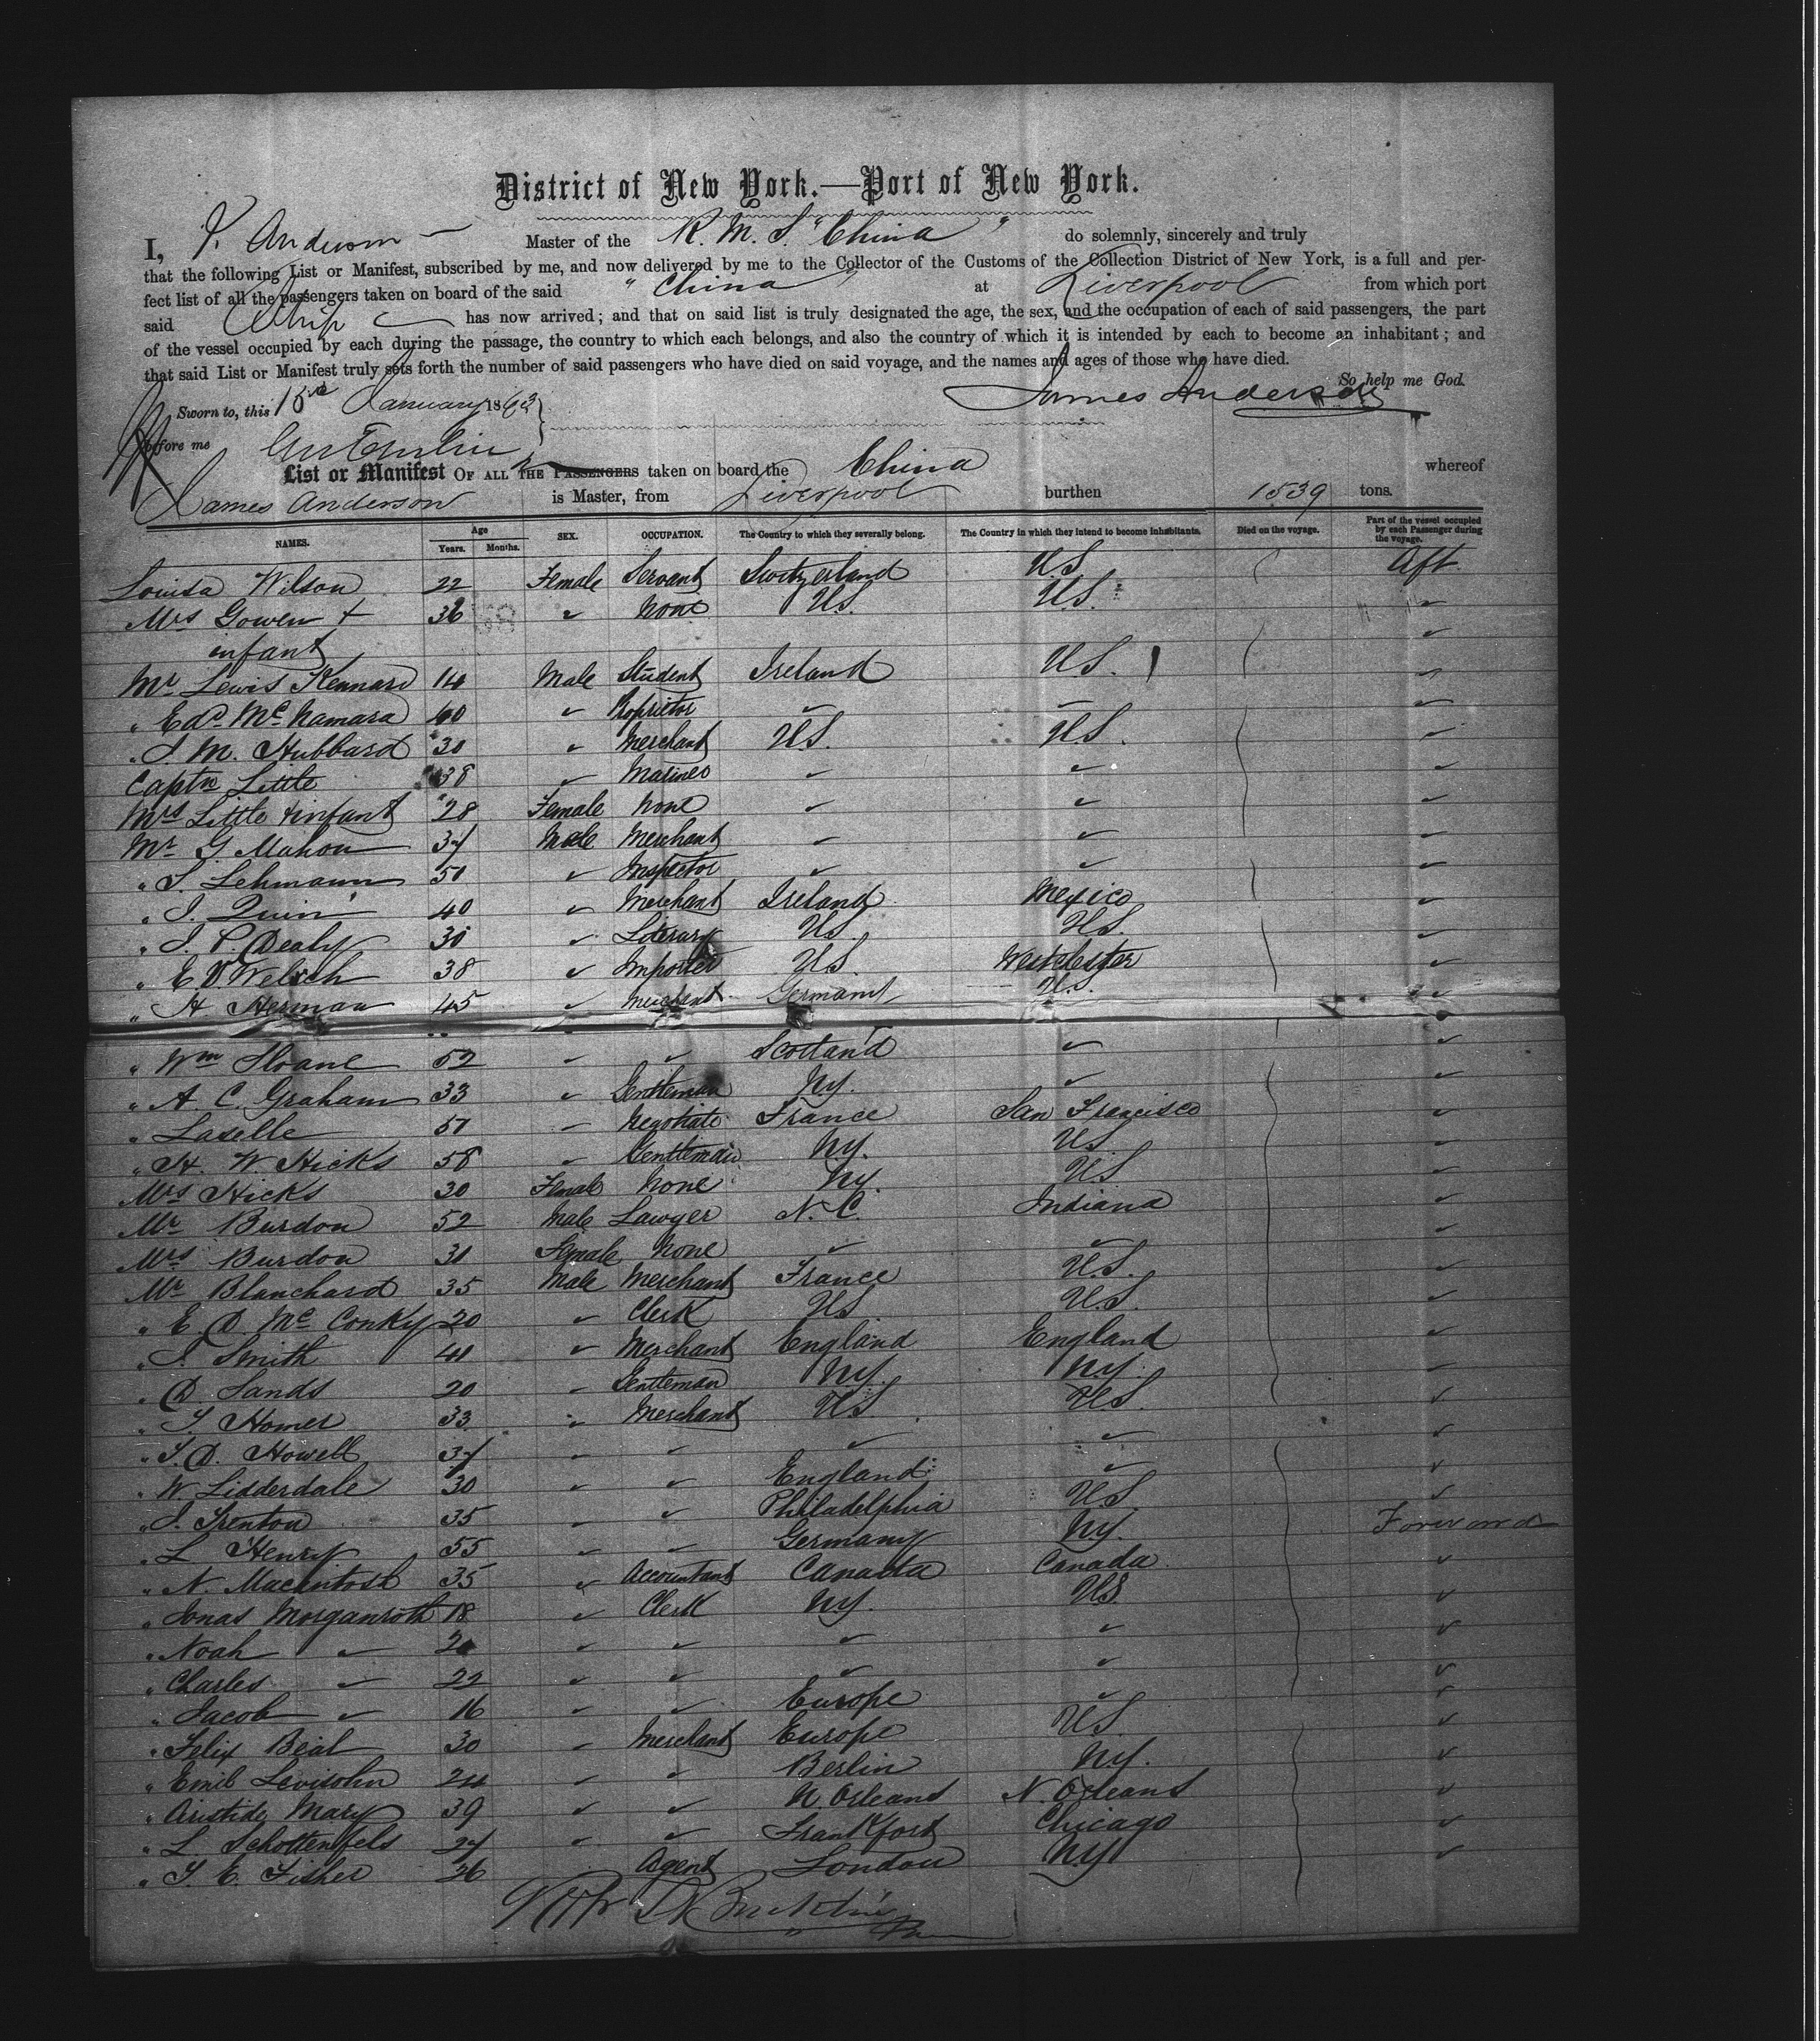 District of New York.—Port of New York.
I, J. Anderson Master of the R. M. S. "China" do solemnly, sincerely and truly
that the following List or Manifest, subscribed by me, and now delivered by me to the Collector of the Customs of the Collection District of New York, is a full and per-
fect list of all the passengers taken on board of the said "China" at Liverpool from which port
said Ship has now arrived; and that on said list is truly designated the age, the sex, and the occupation of each of said passengers, the part
of the vessel occupied by each during the passage, the country to which each belongs, and also the country of which it is intended by each to become an inhabitant; and
that said List or Manifest truly sets forth the number of said passengers who have died on said voyage, and the names and ages of those who have died.
So help me God.
Sworn to, this 15th January 1863 James Anderson
Before me
List or Manifest OF ALL THE PASSENGERS taken on board the China whereof
James Anderson is Master, from Liverpool burthen 1539 tons.
NAMES. Age Years. Months. SEX. OCCUPATION. The Country to which they severally belong. The Country in which they intend to become inhabitants. Died on the voyage. Part of the vessel occupied by each Passenger during the voyage.
Louisa Wilson 22 Female Servant Switzerland U.S. Aft
Mrs Gowen + 36 " None U.S. U.S. "
infant "
Mr Lewis Kennard 14 Male Student Ireland U.S. "
" Edd McNamara 40 " Proprietor " " "
" J. M. Hubbard 30 " Merchant U.S. U.S. "
Captn Little 38 " Mariner " " "
Mrs Little + infant 28 Female None " " "
Mr G. Mahon 34 Male Merchant " " "
" S. Lehmann 50 " Inspector " " "
" J. Quin 40 " Merchant Ireland Mexico "
" J. P. Dealy 30 " Literary U.S. U.S. "
" E V Welsch 38 " Importer U.S. Westchester "
" H Herman 45 " Merchant Germany U.S. "
" Wm Sloane 52 " " Scotland " "
" A C. Graham 33 " Gentleman NY. " "
" Laselle 57 " Negotiate France San Francisco "
" H. W. Hicks 58 " Gentleman NY. U.S. "
Mrs Hicks 30 Female None NY. U.S. "
Mr Burdon 52 Male Lawyer N. C. Indiana "
Mrs Burdon 30 Female None " " "
Mr Blanchard 35 Male Merchant France U.S. "
" E. D. McConky 20 " Clerk U.S. U.S. "
" J. Smith 41 " Merchant England England "
" D Sands 20 " Gentleman NY. NY. "
" T. Homer 33 " Merchant U.S. U.S. "
" S. D. Howell 34 " " " " "
" W. Lidderdale 30 " " England " "
" J. Trenton 35 " " Philadelphia U.S. "
" L Henry 55 " " Germany NY. Forward
" N. Macintosh 35 " Accountant Canada Canada "
" Jonas Morganroth 18 " Clerk NY. U.S. "
" Noah " 20 " " " " "
" Charles " 22 " " " " "
" Jacob " 16 " " Europe " "
" Felix Beal 30 " Merchant Europe U.S. "
" Emil Levisohn 24 " " Berlin NY. "
" Aristide Mary 39 " " N Orleans N. Orleans "
" L Schottenfels 24 " " Frankfort Chicago "
" T E. Fisher 26 " Agent London NY "